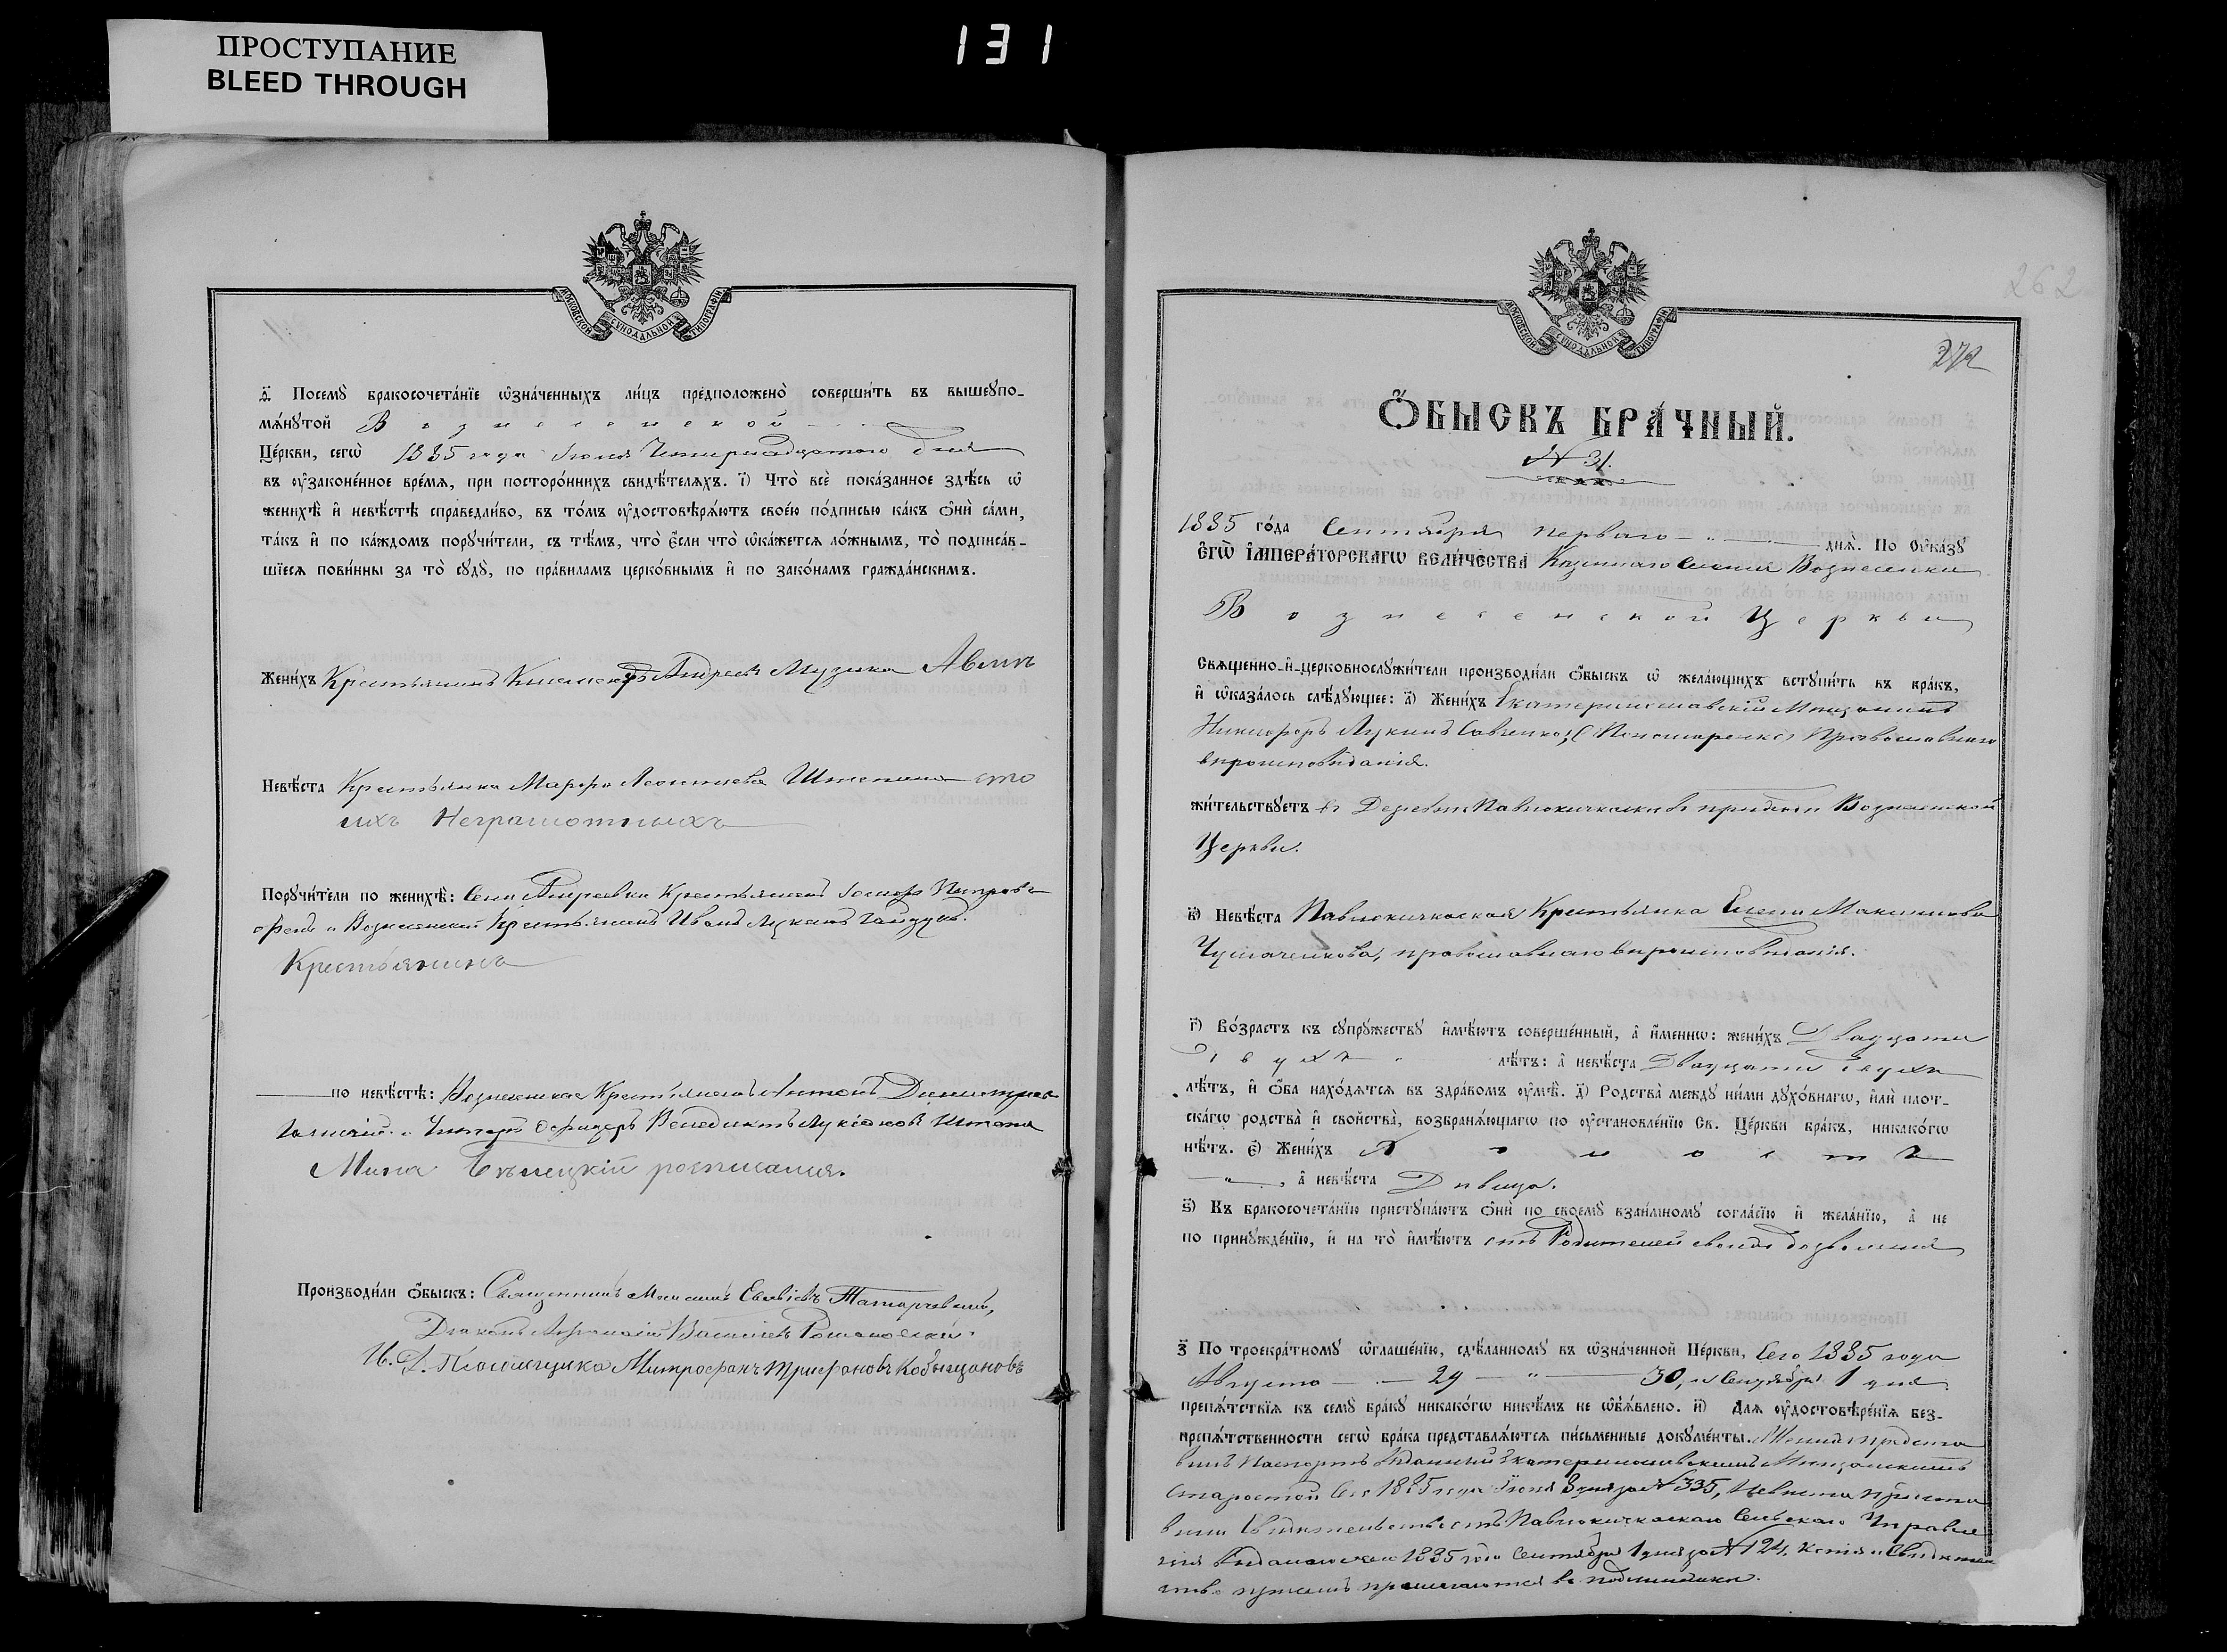 ПРОСТУПАНИЕ
BLEED THROUGH
131
МОСКОВСКОЙ СѴНОДАЛЬНОЙ ТИПОГРАФІИ
Ѳ҃) Посемꙋ̀ бракосочета́нїе ѡ҆зна́ченныхъ ли́цъ предположено̀ соверши́ть въ вышеꙋпо-
мѧ́нꙋтой Вознесенской
Це́ркви, сегѡ̀ 1885 года Іюля Четырнадцатаго дня
въ ᲂу҆зако́нное вре́мѧ, при посторо́ннихъ свидѣ́телѧхъ. і҃) Что̀ всѐ пока́занное здѣ́сь ѡ҆
женихѣ̀ и҆ невѣ́стѣ справедли́во, въ то́мъ ᲂу҆достовѣрѧ́ютъ свое́ю по́дписью ка́къ ѻ҆нѝ са́ми,
та́къ и҆ по ка́ждомъ порꙋчи́тели, съ тѣ́мъ, что̀ є҆́сли что̀ ѡ҆ка́жетсѧ ло́жнымъ, то̀ подписа́в-
шїесѧ пови́нны за то̀ сꙋдꙋ̀, по пра́виламъ церко́внымъ и҆ по зако́намъ гражда́нскимъ.
Жени́хъ Крестьянинъ Андреевъ Музыка
Невѣ́ста Крестьянка Марфа Леонтиева
ихъ Неграмотныхъ
Порꙋчи́тели по женихѣ̀: Села Андреевки Крестьянинъ Іосифъ Петровъ
и Вознесенский Крестьянинъ Иванъ Лукинъ
Крестьянинъ
по невѣ́стѣ: Вознесенская Крестьянинъ Антонъ Димитриев
и Унтеръ Офицеръ Венедиктъ
Мина росписался.
Производи́ли ѻ҆́быскъ: Священникъ Евсевіевъ
Діаконъ Афанасій Васильевъ Романовскій.
И. д. Псаломщика Митрофанъ Трифоновъ Кобыщановъ
262
272
МОСКОВСКОЙ СѴНОДАЛЬНОЙ ТИПОГРАФІИ
Ѻ҆́БЫСКЪ БРА́ЧНЫЙ.
№ 31.
1885 го́да Сентября перваго днѧ̀. По ᲂу҆ка́зꙋ
є҆гѡ̀ і҆мпера́торскагѡ вели́чества Казеннаго Селения Вознесенки
Вознесенской Церкви
Свѧще́нно-и҆-церковнослꙋжи́тели производи́ли ѻ҆́быскъ ѡ҆ жела́ющихъ встꙋпи́ть въ бра́къ,
и҆ ѡ҆каза́лось слѣ́дꙋющее: а҃) Жени́хъ Екатеринославскій Мещанинъ
Никифоръ Лукинъ Савченко, (Пономаренко) Православнаго
вѣроисповѣданія.
жи́тельствꙋетъ въ Деревни Павлокичкаски въ приходѣ Вознесенской
Церкви.
в҃) Невѣ́ста Павлокичкаская Крестьянка Елена Максимова
православнаго вѣроисповѣданія.
г҃) Во́зрастъ къ сꙋпрꙋ́жествꙋ и҆мѣ́ютъ соверше́нный, а҆ и҆́меннѡ: жени́хъ Двадцати
двухъ лѣ́тъ: а҆ невѣ́ста Двадцати двухъ
лѣ́тъ, и҆ ѻ҆́ба нахо́дѧтсѧ въ здра́вомъ ᲂу҆мѣ̀. д҃) Родства̀ междꙋ ни́ми дꙋхо́внагѡ, и҆лѝ плот-
ска́гѡ родства̀ и҆ свойства̀, возбранѧ́ющагѡ по ᲂу҆становле́нїю Св. Це́ркви бра́къ, никако́гѡ
нѣ́тъ. є҃) Жени́хъ Холостъ
, а҆ невѣ́ста Дѣвица.
ѕ҃) Къ бракосочета́нїю пристꙋпа́ютъ ѻ҆нѝ по своемꙋ̀ взаи́мномꙋ согла́сїю и҆ жела́нїю, а҆ не
по принꙋжде́нїю, и҆ на то̀ и҆мѣ́ютъ отъ Родителей своихъ дозволеніе
з҃) По троекра́тномꙋ ѡ҆глаше́нїю, сдѣ́ланномꙋ въ ѡ҆зна́ченной Це́ркви, сего 1885 года
Августа 29 30, и Сентября 1 дня
препѧ́тствїѧ къ семꙋ̀ бра́кꙋ никако́гѡ никѣ́мъ не ѡ҆б̾ѧ́влено. и҃) Длѧ ᲂу҆достовѣре́нїѧ без-
препѧ́тственности сегѡ̀ бра́ка представлѧ́ютсѧ пи́сьменные докꙋме́нты. Женихъ предста
вилъ Паспортъ выданный Екатеринославскимъ Мещанскимъ
Старостой сего 1885 года Іюня 3 дня за № 335, Невѣста предста
вила Свидѣтельство отъ Павлокичкаскаго Сельскаго Управле
нія выданное сего 1885 года Сентября 1 дня за № 124, и Свидѣтель
ство при семъ прилагаются въ подлинникѣ.